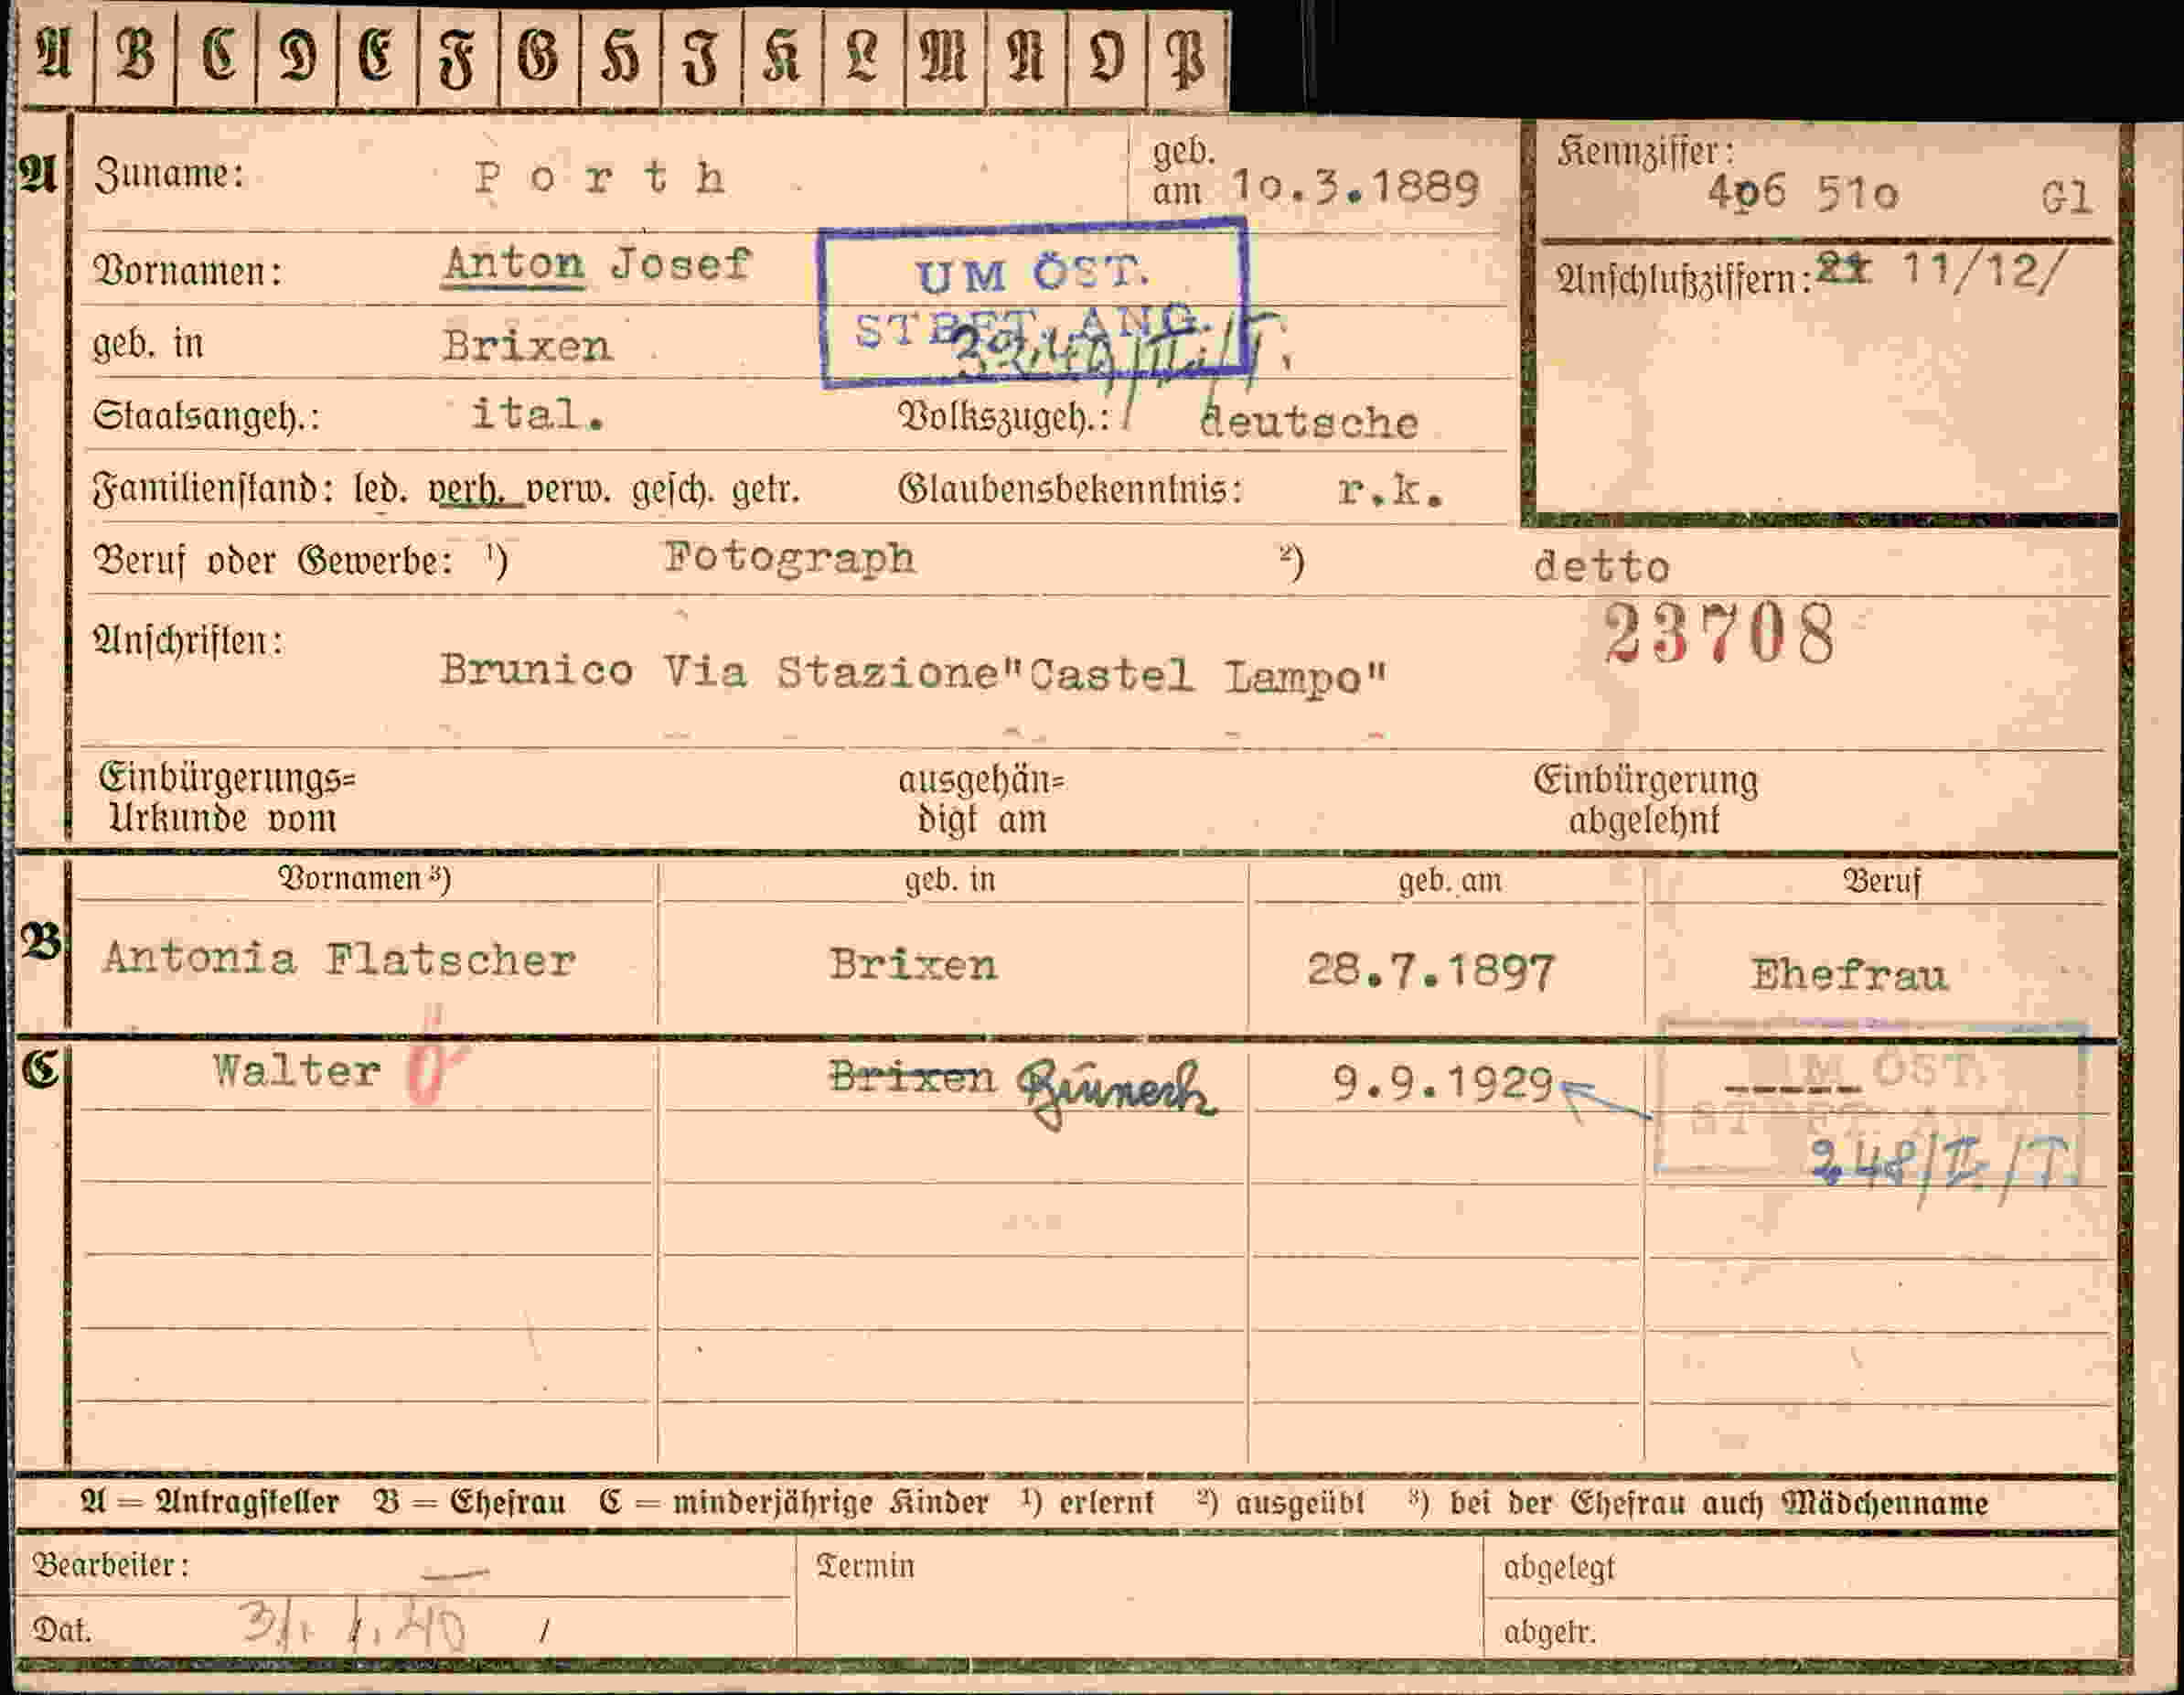 A B C D E F G H I K L M N O P
A Zuname: Porth geb. am 10.3.1889
Kennziffer: 406 510 Gl
Vornamen: Anton Josef
UM ÖST.
STBFT. ANG.
Anschlußziffern: 11/12/
geb. in Brixen
Staatsangeh.: ital. Volkszugeh.: deutsche
Familienstand: led. verh. verw. gesch. getr. Glaubensbekenntnis: r.k.
Beruf oder Gewerbe: ¹) Fotograph ²) detto
23708
Anschriften: Brunico Via Stazione "Castel Lampo"
Einbürgerungs=
Urkunde vom
ausgehän=
digt am
Einbürgerung
abgelehnt
Vornamen ³) geb. in geb. am Beruf
B Antonia Flatscher Brixen 28.7.1897 Ehefrau
C Walter Brixen Bruneck 9.9.1929 -----
UM ÖST.
248/II/T.
A = Antragsteller B = Ehefrau C = minderjährige Kinder ¹) erlernt ²) ausgeübt ³) bei der Ehefrau auch Mädchenname
Bearbeiter: Termin abgelegt
Dat. 31. 1. 40 / abgetr.